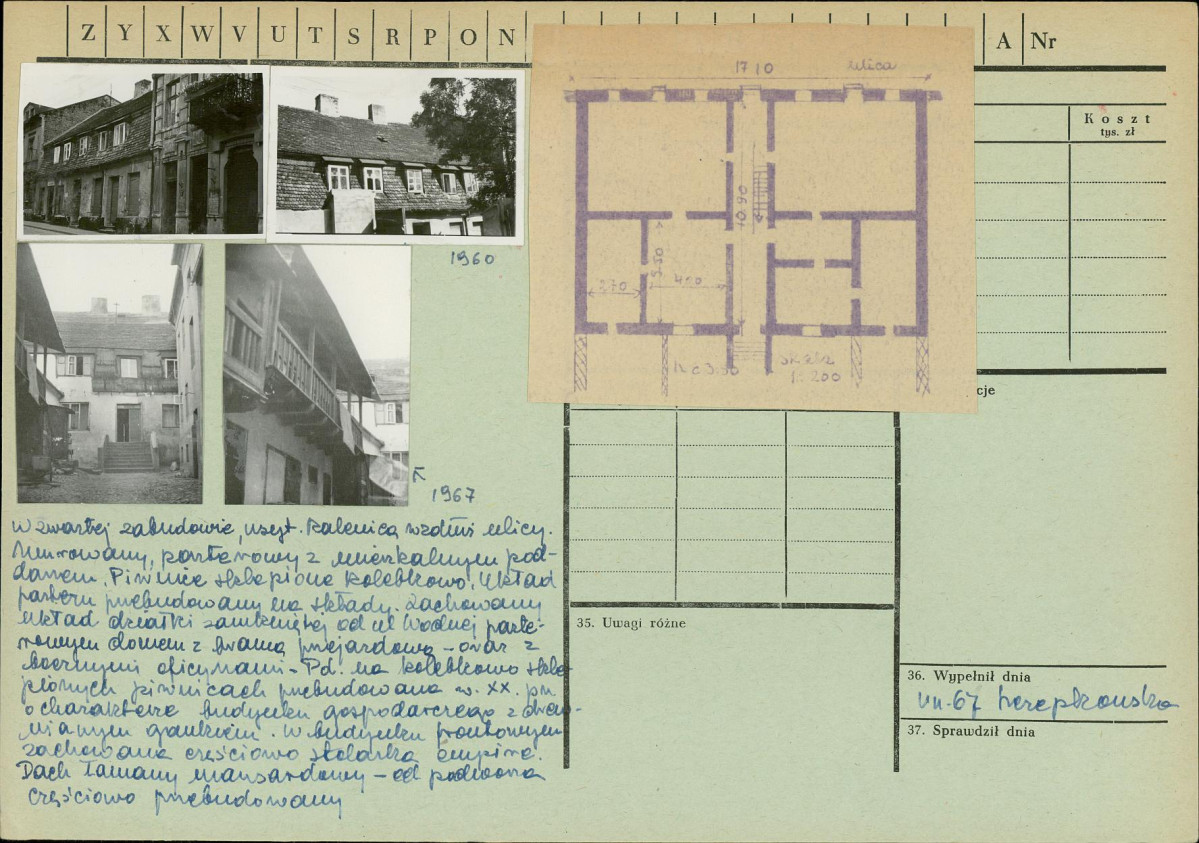 Z Y X W V U T S R P O N A Nr
1710 ulica
10.90
5.50
270
400
h = 3.00
skala
1:200
Koszt
tys. zł
cje
1960
1967
W zwartej zabudowie, usyt. kalenicą wzdłuż ulicy.
Murowany, parterowy z mieszkalnym pod-
daszem. Piwnice sklepione kolebkowo. Układ
parteru przebudowany na składy. Zachowany
układ działki zamkniętej od ul Wodnej parte-
rowym domem z bramą przejazdową – oraz z
bocznymi oficynami – Pd. na kolebkowo skle-
pionych piwnicach przebudowana w. XX. pn
o charakterze budynku gospodarczego z drew-
nianym gankiem. W budynku frontowym
zachowana częściowo stolarka empire.
Dach łamany mansardowy – od podwórza
częściowo przebudowany
35. Uwagi różne
36. Wypełnił dnia
VII-67
37. Sprawdził dnia